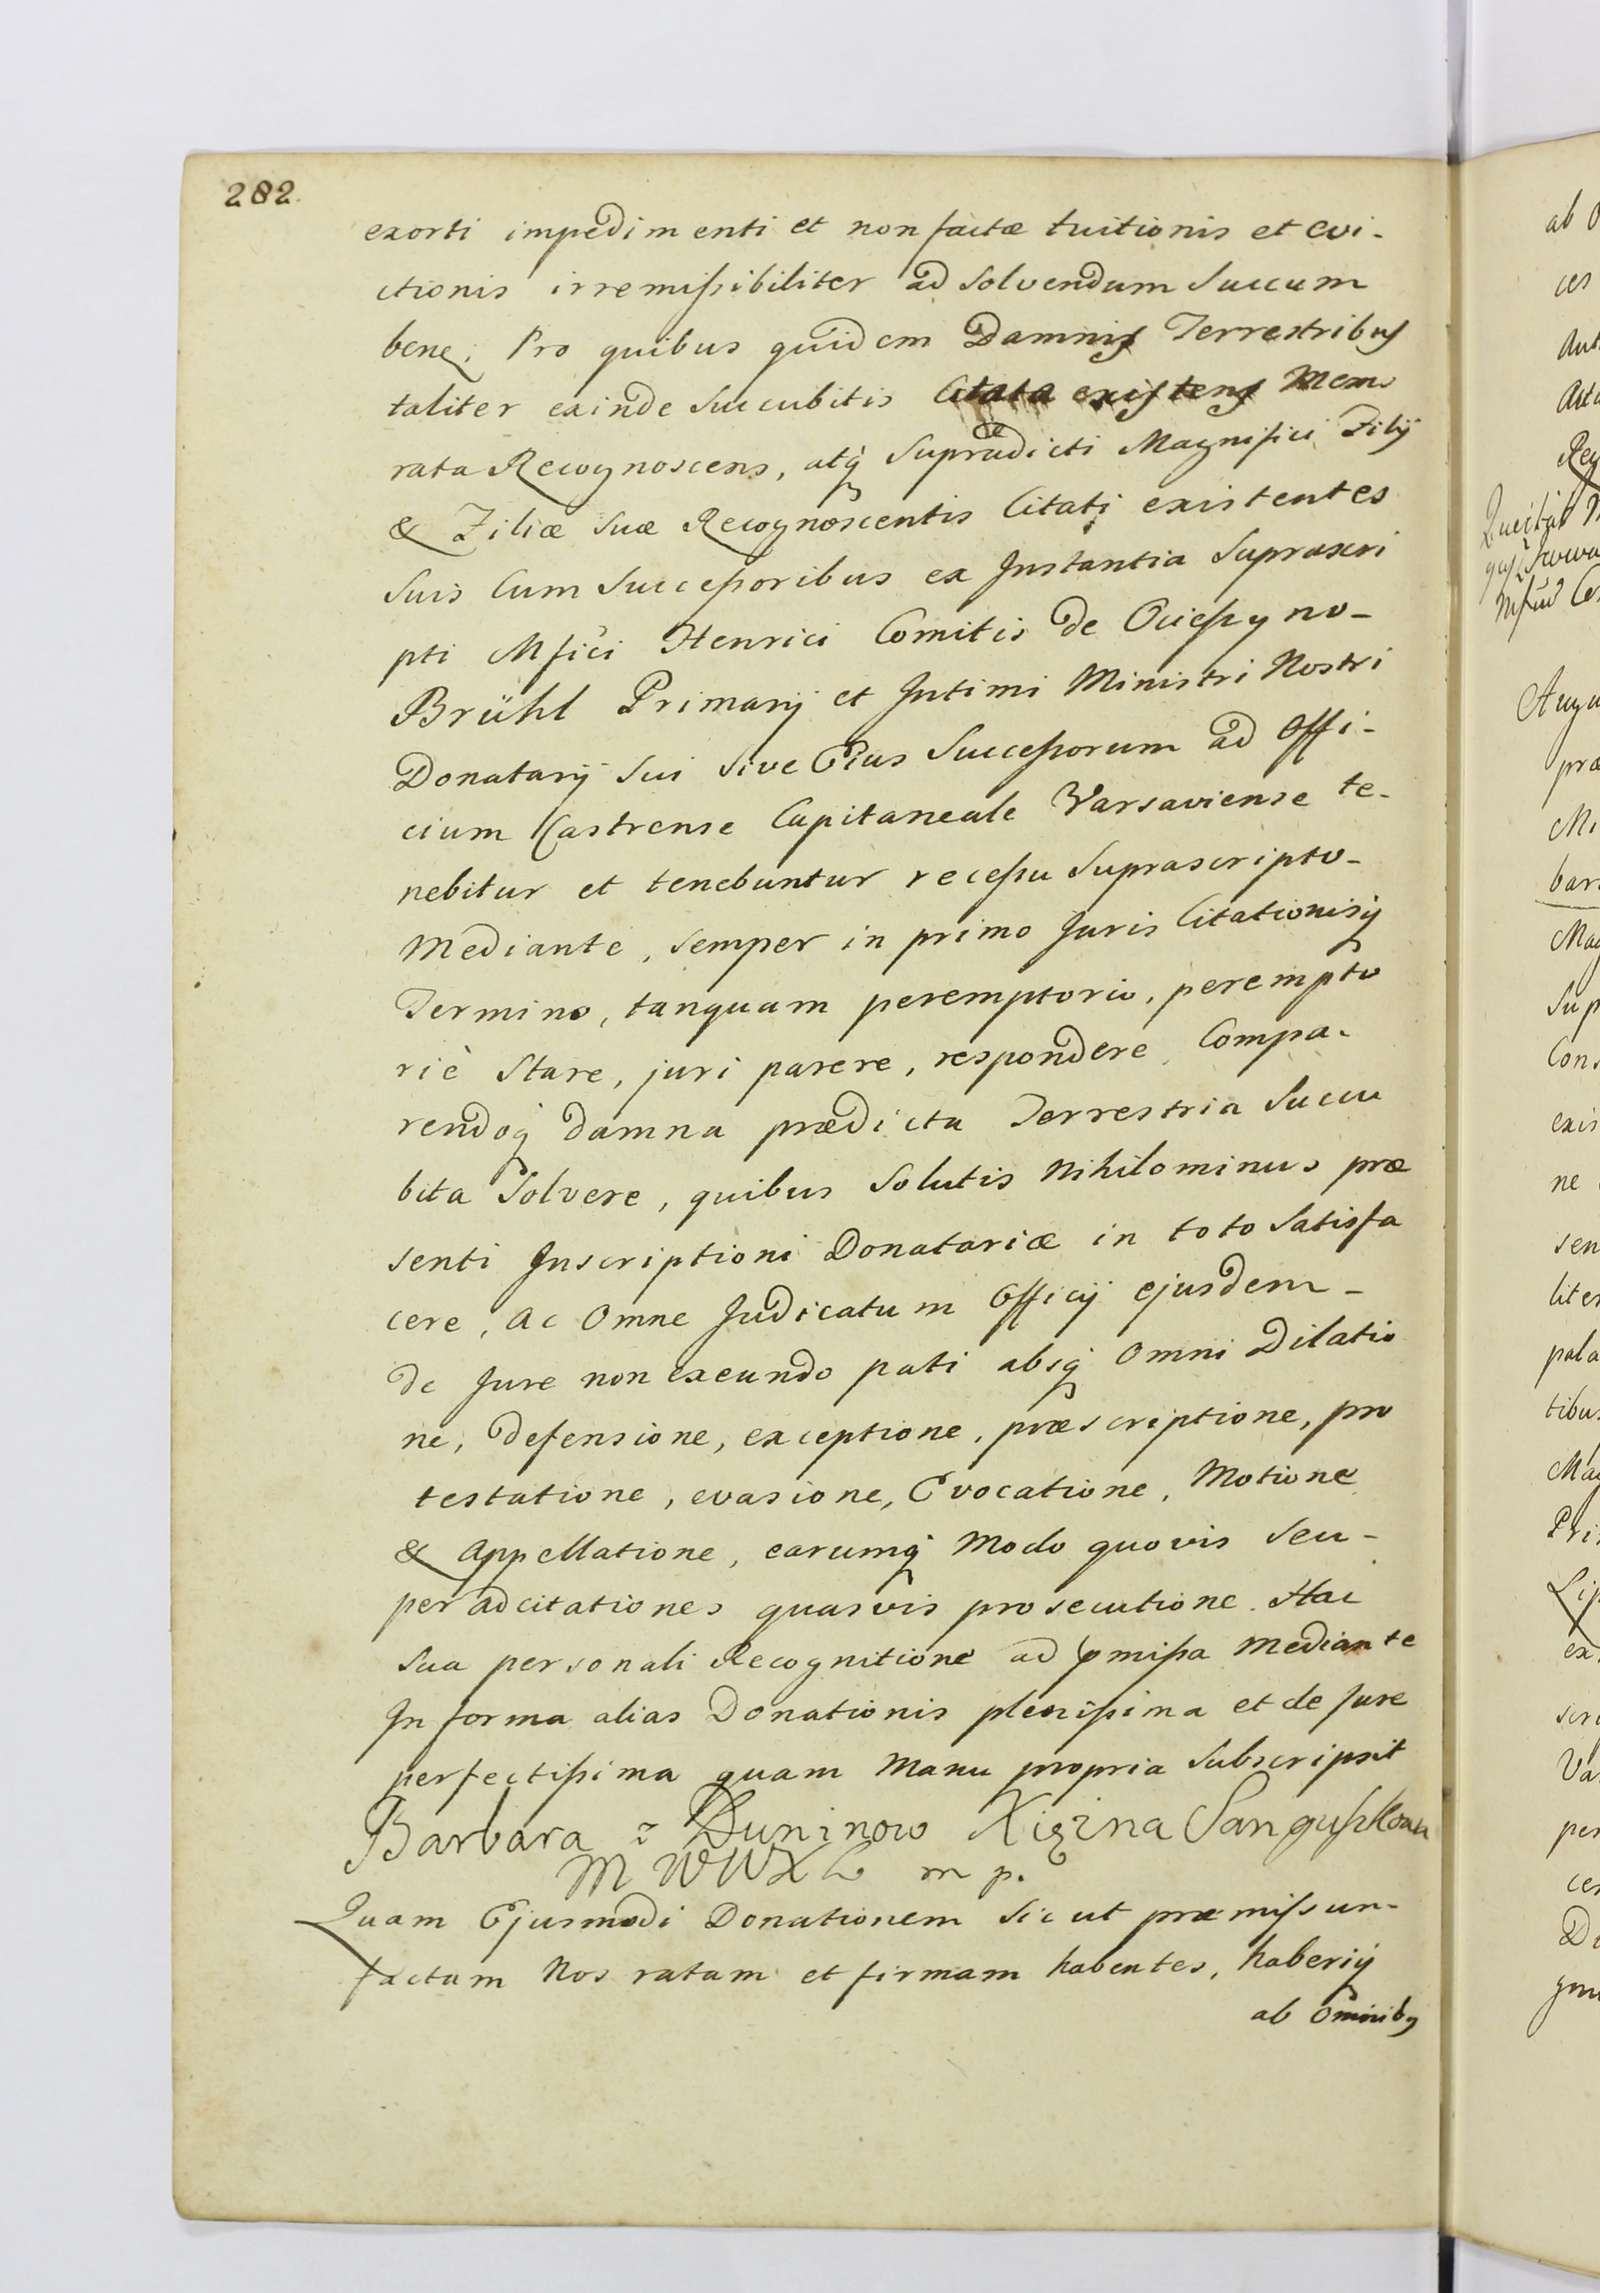 282.
exorti impedimenti et non factæ tuitionis et evi-
ctionis irremissibiliter ad solvendum Succum
bene; Pro quibus quidem Damnis Terrestribus
taliter exinde Succubitis Citata existens Memo
rata Recognoscens, atq supradicti Magnifici Filij
& Filiæ suæ Recognoscentis Citati existentes
suis Cum Successoribus ex Instantia Suprascri
pti Mfici Henrici Comitis de Ocieszyno-
Brühl Primarij et Intimi Ministri Nostri
Donatarij Sui sive Ejus Successorum ad Offi-
cium Castrense Capitaneale Varsaviense te-
nebitur et tenebuntur recessu Suprascripto-
Mediante, semper in primo Juris Citationisq
Termino, tanquam peremptorio, perempto
riè Stare, juri parere, respondere Compa-
rendoq damna prædicta Terrestria Succu
bita Solvere, quibus Solutis Nihilominus præ
senti Inscriptioni Donatariæ in toto Satisfa
cere, ac Omne Judicatum Officij ejusdem-
de Jure non exeundo pati absq Omni Dilatio
ne, Defensione, exceptione, præscriptione, pro
testatione, evasione, Evocatione, Motione
& Appellatione, earumq Modo quovis Seu-
per adcitationes quasvis prosecutione. Hac
sua personali Recognitione ad pmissa Mediante
In forma alias Donationis plenissima et de Jure
perfectissima quam Manu propria Subscripsit
Barbara z Duninow Xiężna Sanguszkowa
M W W X L m p.
Quam Ejusmodi Donationem Sicut præmissum-
factam Nos ratam et firmam habentes, haberiq
ab Omnibq